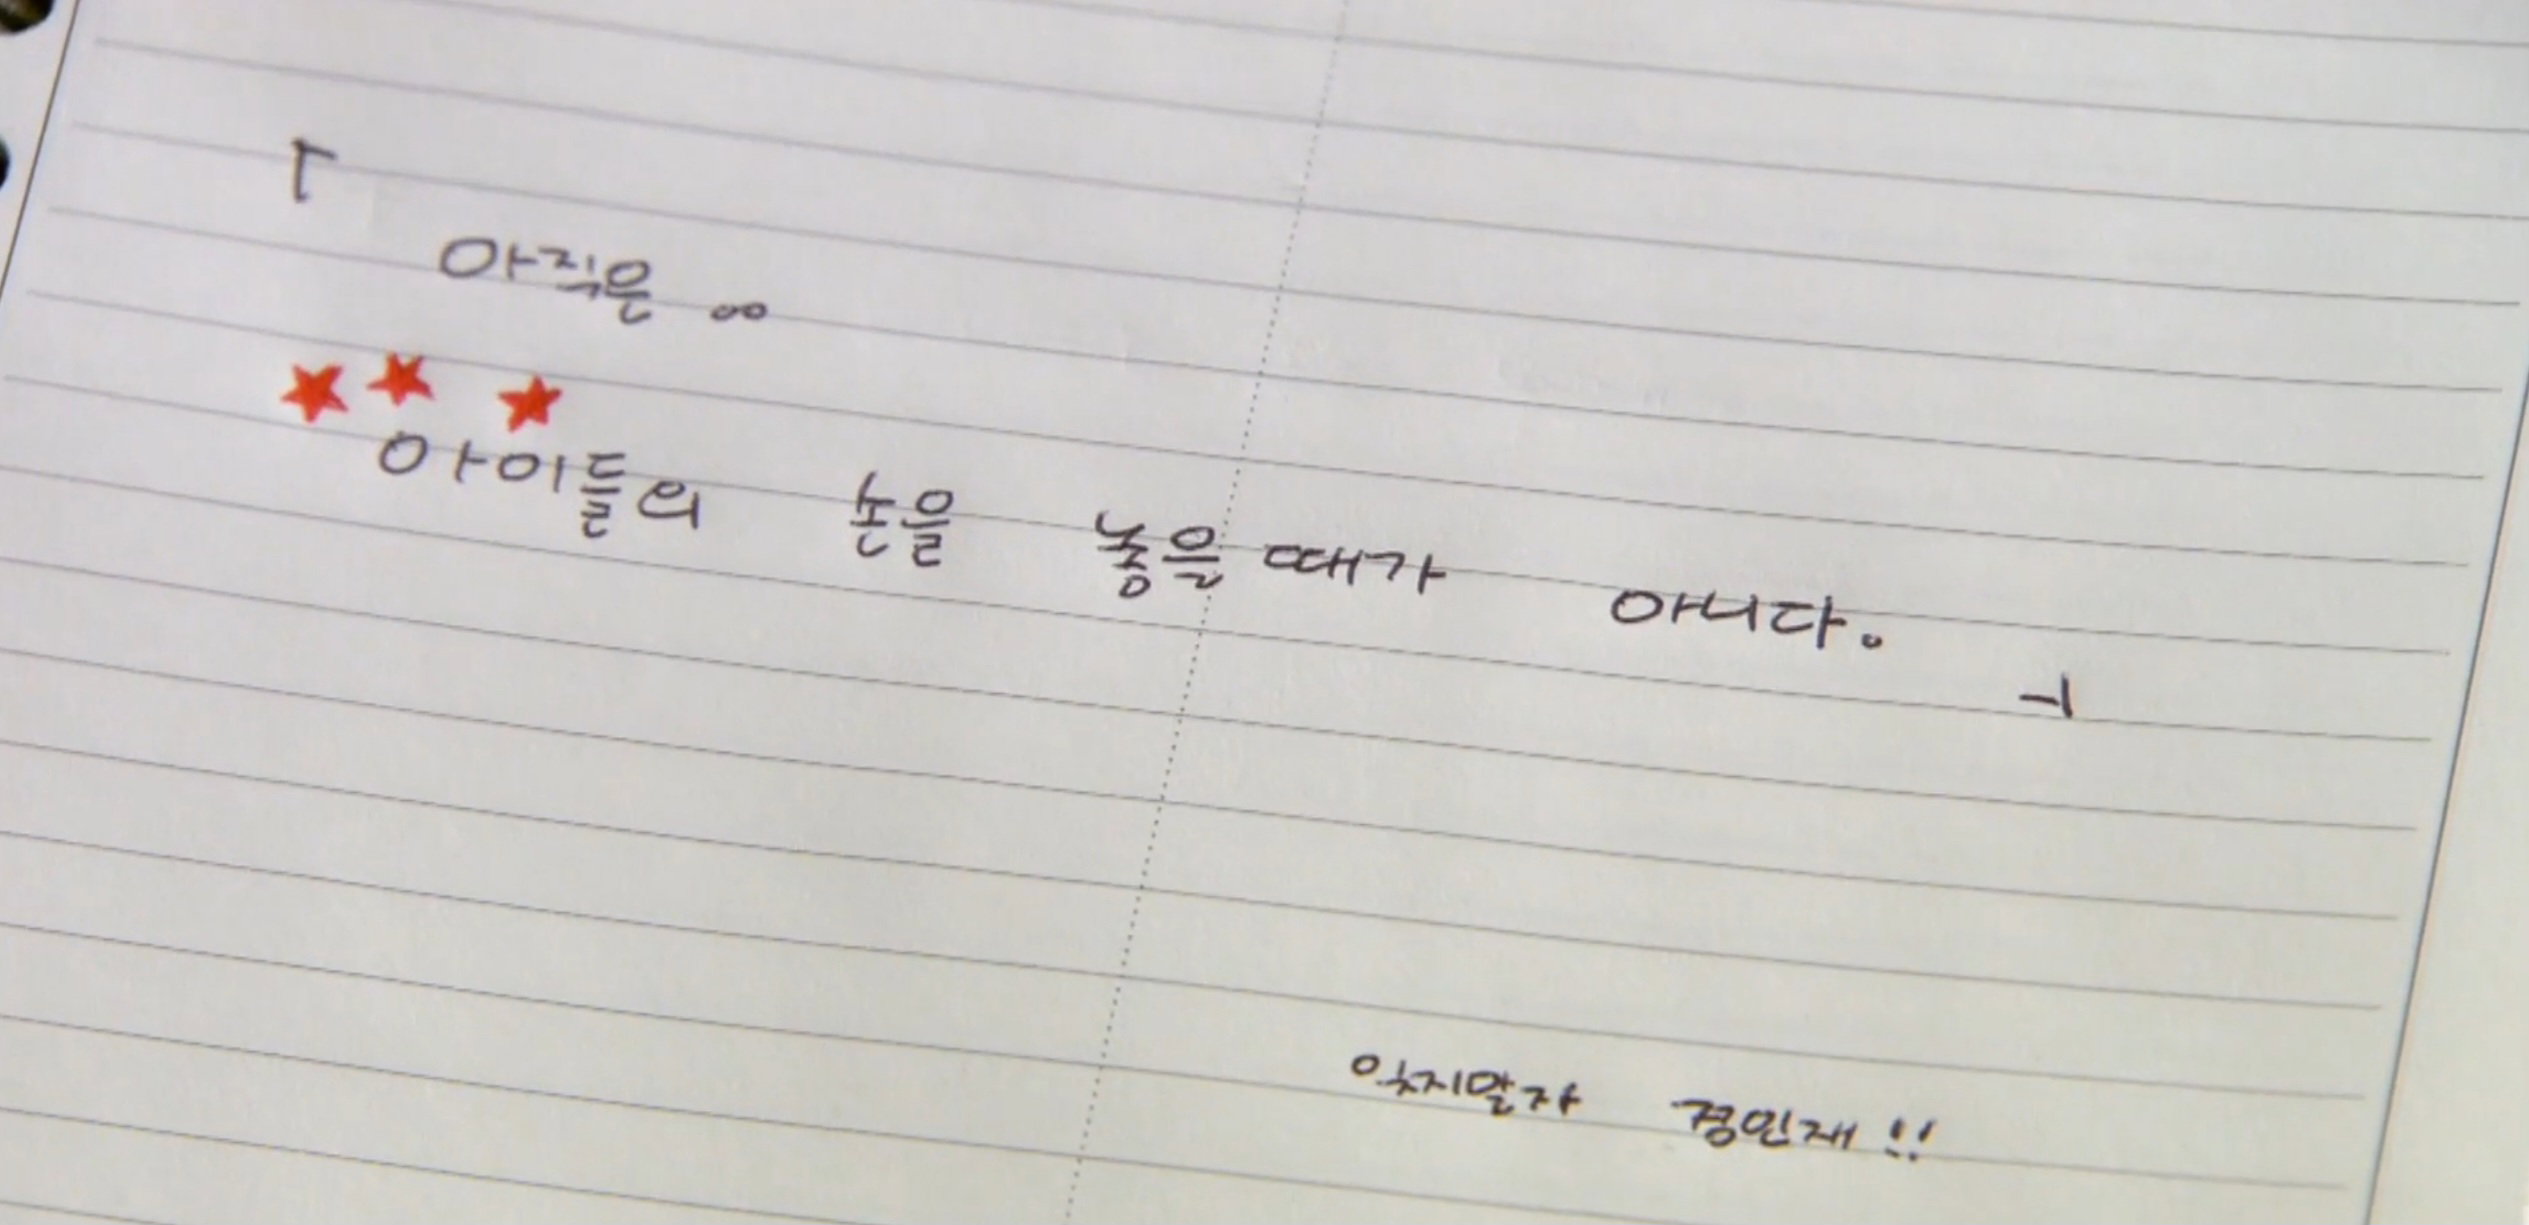 「
아직은 ∞
★★ ★
아이들의 손을 놓을 때가 아니다.
」
잊지말자 경인재!!